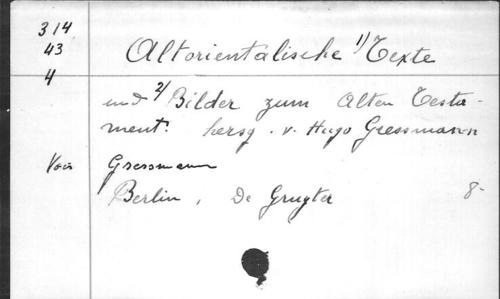 314
43
4
Altorientalische 1/ Texte
und 2/ Bilder zum Alten Testa-
ment. hersg. v. Hugo Gressmann
Voir Gressmann
Berlin, De Gruyter 8-